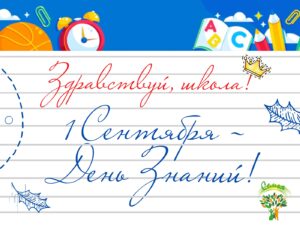 A B C
Здравствуй, школа!
1 Сентября -
День Знаний!